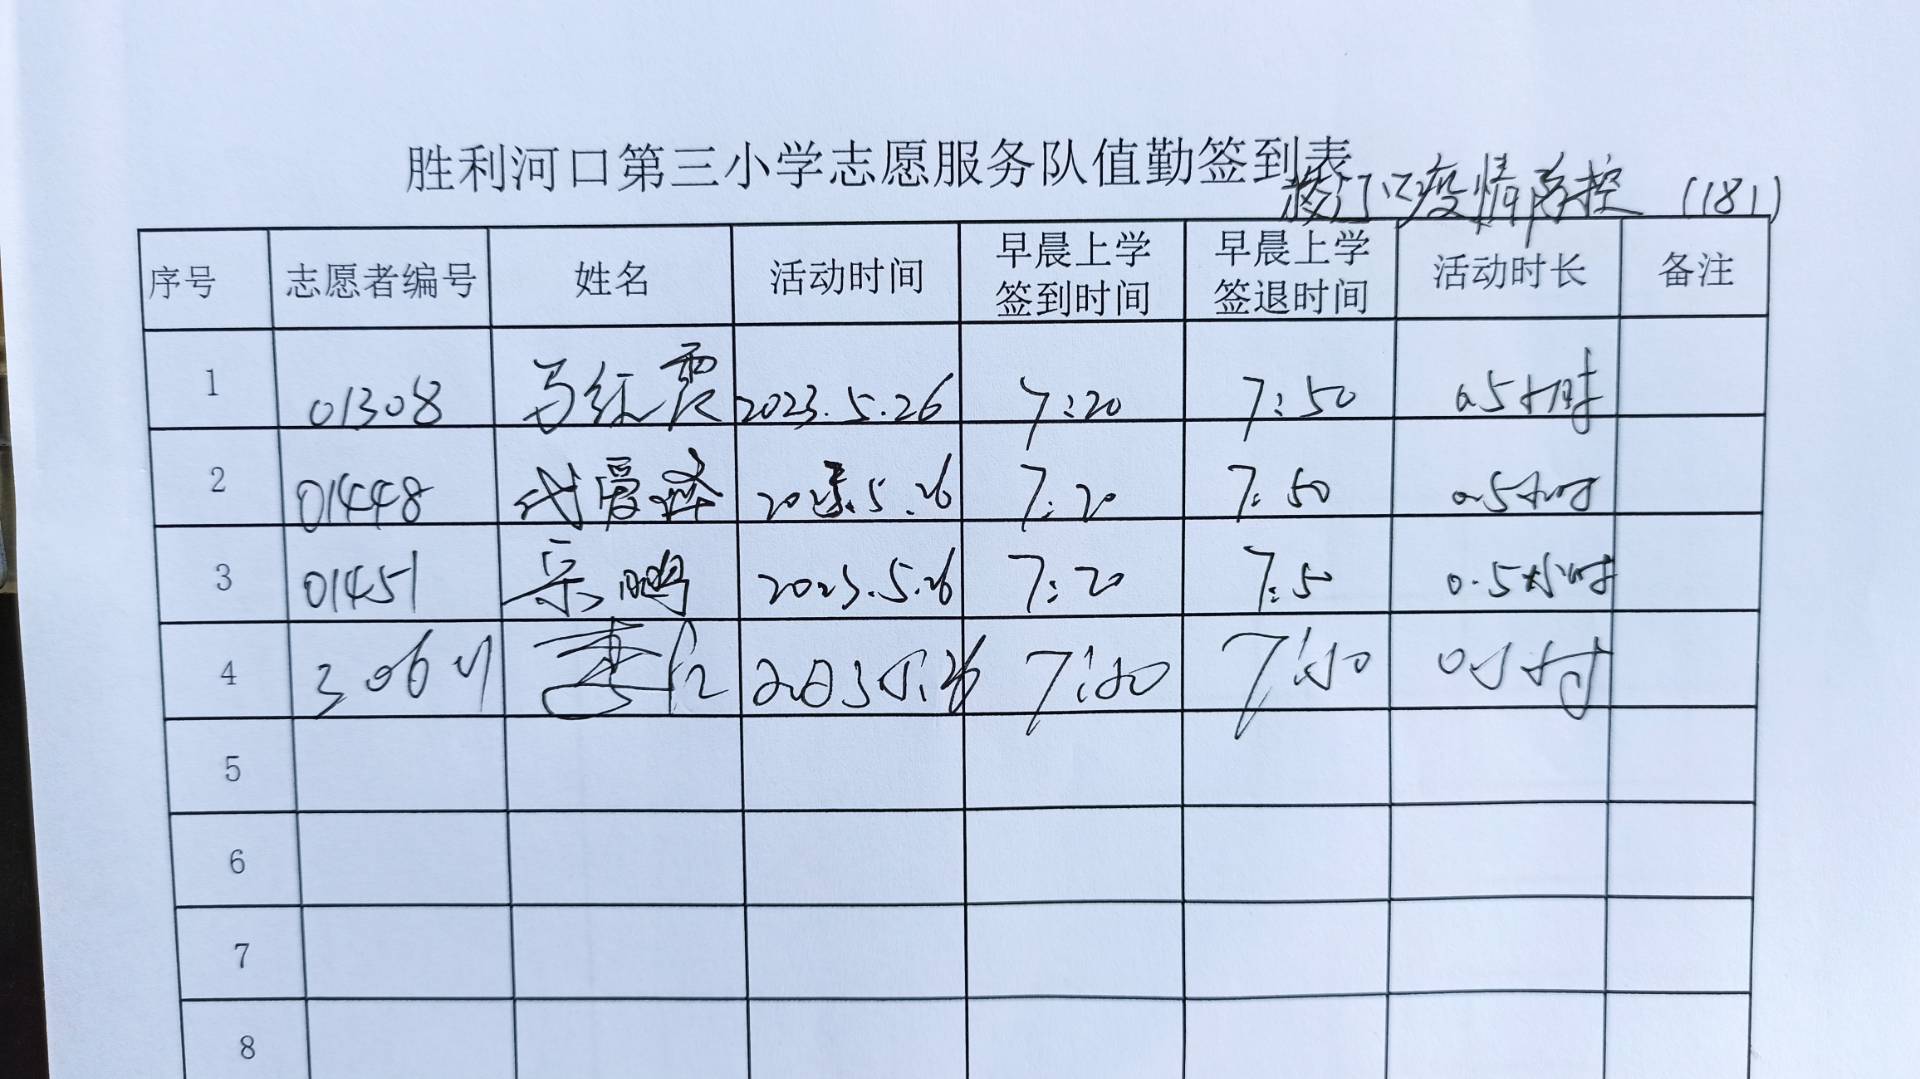 胜利河口第三小学志愿服务队值勤签到表
校门口疫情防控 (181)
序号 志愿者编号 姓名 活动时间 早晨上学签到时间 早晨上学签退时间 活动时长 备注
1 01308 马红霞 2023.5.26 7:20 7:50 0.5小时
2 01448 代爱 2023.5.26 7:20 7:50 0.5小时
3 01451 宋鹏 2023.5.26 7:20 7:5 0.5小时
4 李 7:20 7:50
5
6
7
8